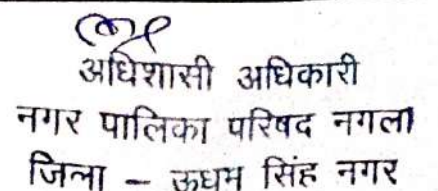 अधिशासी अधिकारी
नगर पालिका परिषद नगला
जिला – ऊधम सिंह नगर